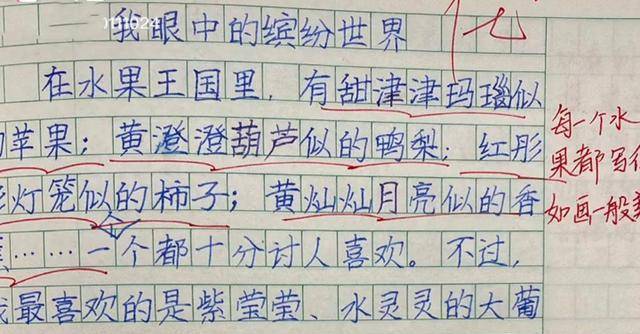 我眼中的缤纷世界
在水果王国里,有甜津津玛瑙似
的苹果;黄澄澄葫芦似的鸭梨;红彤
彤灯笼似的柿子;黄灿灿月亮似的香
个
蕉……一个都十分讨人喜欢。不过,
我最喜欢的是紫莹莹、水灵灵的大葡
每一个水
果都写得
如画一般美